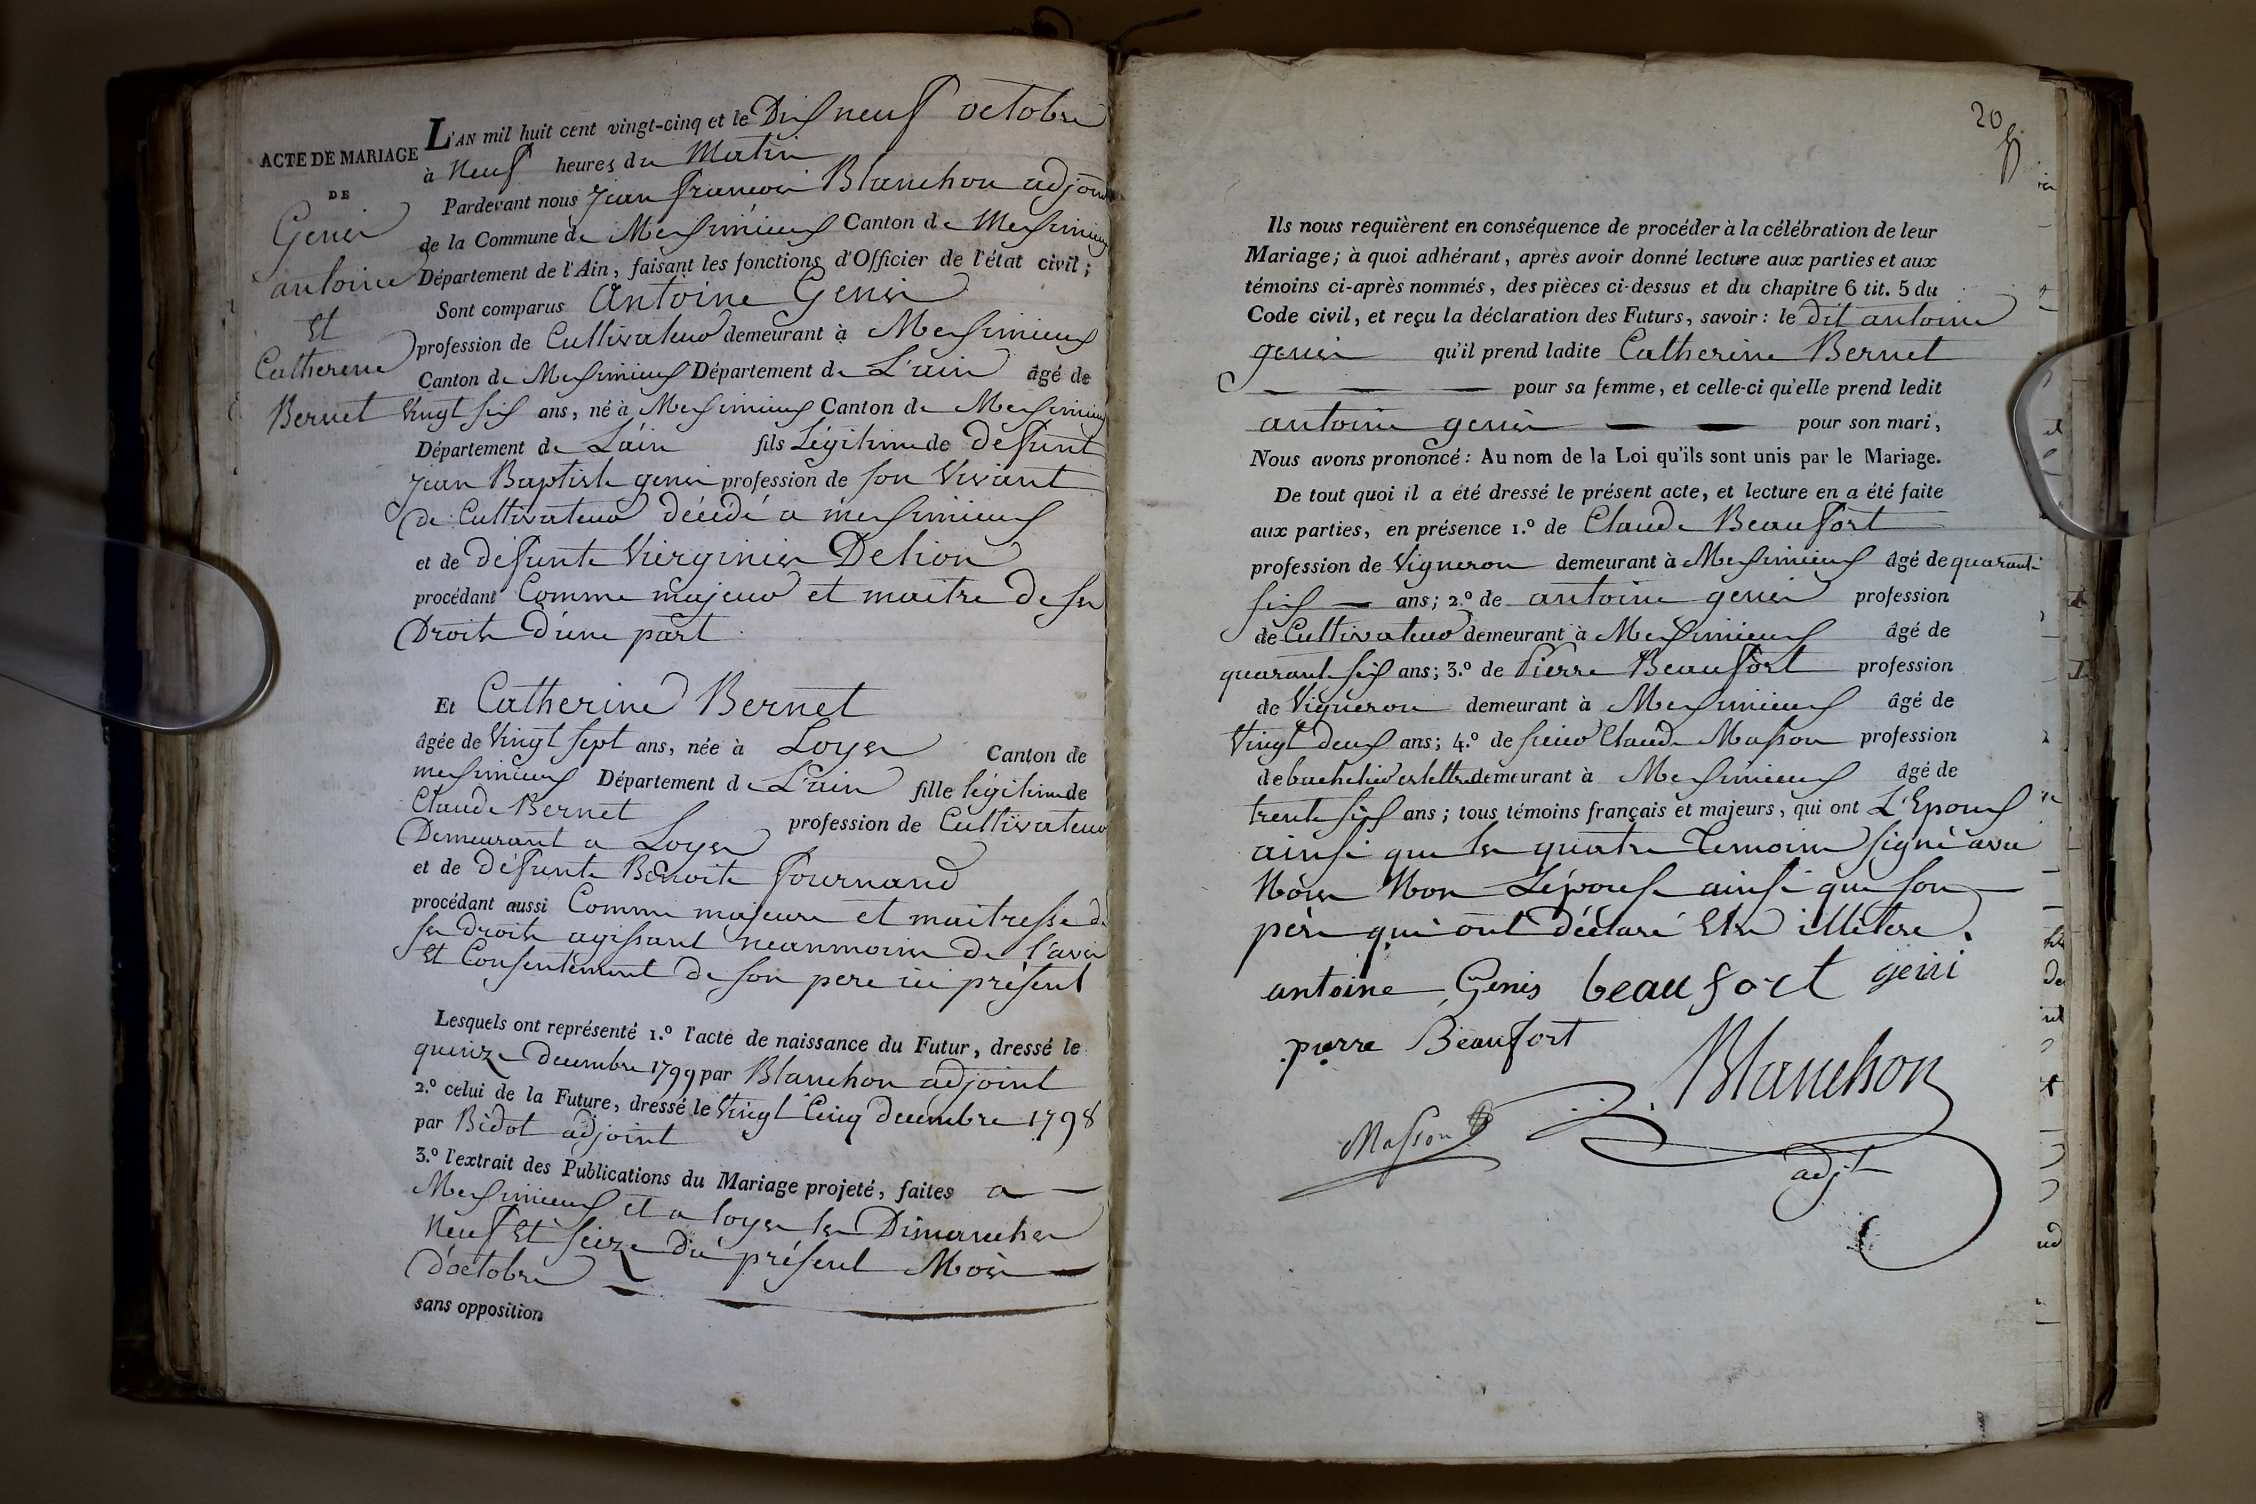 ACTE DE MARIAGE
DE
Genis
antoine
Et
Catherine
Bernet
L'AN mil huit cent vingt-cinq et le Dix neuf octobre
à Neuf heures du Matin
Pardevant nous jean françois Blanchon adjoint
de la Commune de Meximieux Canton de Meximieux
Département de l'Ain, faisant les fonctions d'Officier de l'état civil;
Sont comparus Antoine Genis
profession de Cultivateur demeurant à Meximieux
Canton de Meximieux Département de L'ain âgé de
Vingt six ans, né à Meximieux Canton de Meximieux
Département de L'ain fils Légitime de defunt
jean Baptiste genis profession de son Vivant
de Cultivateur décédé a méximieux
et de défunte Virginie Delion
procédant Comme majeur et maitre de ses
Droits d'une part
Et Catherine Bernet
âgée de Vingt sept ans, née à Loyes Canton de
meximieux Département de L'ain fille légitime de
Claude Bernet profession de Cultivateur
Demeurant a Loyes
et de défunte Benoite fournand
procédant aussi Comme majeure et maitresse de
ses droits agissant neanmoins de l'avis
et Consentement de son pere ici présent
Lesquels ont représenté 1.º l'acte de naissance du Futur, dressé le
quinze decembre 1799 par Blanchon adjoint
2.º celui de la Future, dressé le Vingt Cinq decembre 1798
par Bidot adjoint
3.º l'extrait des Publications du Mariage projeté, faites a
Meximieux et a loyes les Dimanches
Neuf Et seize du présent Mois
d'octobre
sans opposition
20
Ils nous requièrent en conséquence de procéder à la célébration de leur
Mariage; à quoi adhérant, après avoir donné lecture aux parties et aux
témoins ci-après nommés, des pièces ci-dessus et du chapitre 6 tit. 5 du
Code civil, et reçu la déclaration des Futurs, savoir: le dit antoine
genis qu'il prend ladite Catherine Bernet
pour sa femme, et celle-ci qu'elle prend ledit
antoine genis pour son mari,
Nous avons prononcé: Au nom de la Loi qu'ils sont unis par le Mariage.
De tout quoi il a été dressé le présent acte, et lecture en a été faite
aux parties, en présence 1.º de Claude Beaufort
profession de Vigneron demeurant à Meximieux âgé de quarante
six ans; 2.º de antoine genis profession
de Cultivateur demeurant à Meximieux âgé de
quarante six ans; 3.º de Pierre Beaufort profession
de Vigneron demeurant à Meximieux âgé de
Vingt deux ans; 4.º de sieur Claude Masson profession
de bachelier es lettre demeurant à Meximieux âgé de
trente six ans; tous témoins français et majeurs, qui ont L'Epoux
ainsi que les quatre Temoins signé avec
Nous Non L'épouse ainsi que son
père qui ont déclaré Etre illétere.
antoine Genis beaufort genis
pierre Beaufort
Blanchon
Masson
adjt